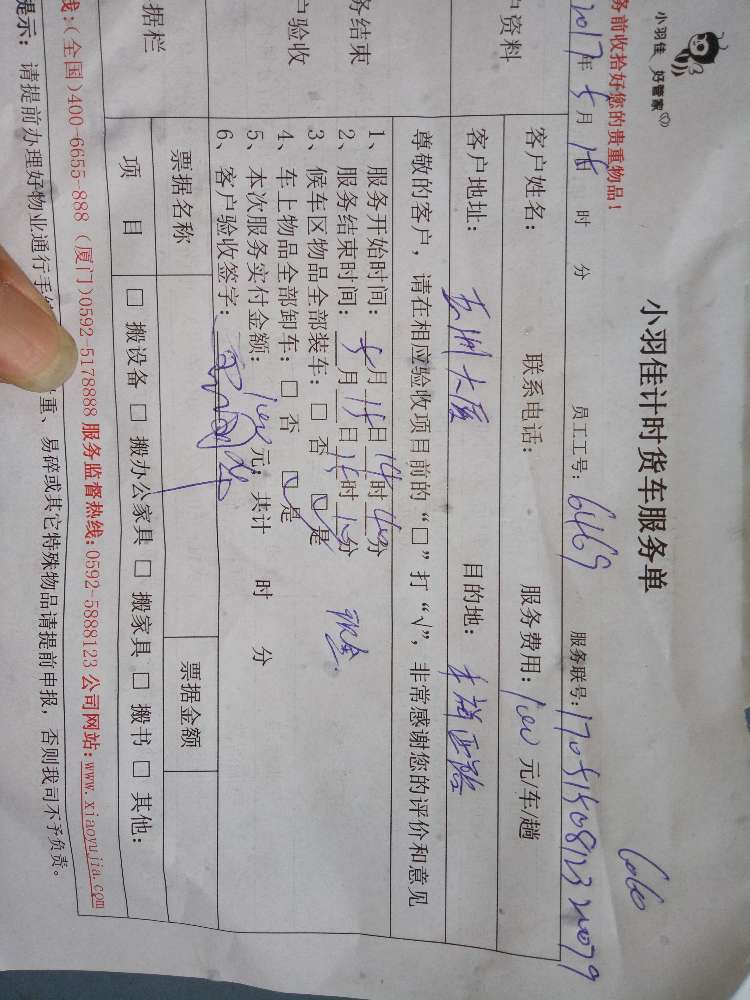 小羽佳 好管家
务前收拾好您的贵重物品!
小羽佳计时货车服务单
2017年5月15日 时 分 员工工号: 6469 服务联号: 1705150812321079
户资料
客户姓名: 联系电话: 服务费用: 100元/车/趟
客户地址: 大厦 目的地:
务结束
户验收
尊敬的客户,请在相应验收项目前的“□”打“√”,非常感谢您的评价和意见
1、服务开始时间: 5月15日14时40分
2、服务结束时间: 月15日15时10分
3、候车区物品全部装车: □ 否 ☑ 是 现金
4、车上物品全部卸车: □ 否 ☑ 是
5、本次服务实付金额: 100元; 共计 时 分
6、客户验收签字:
据栏
票据名称 票据金额
项 目 □ 搬设备 □ 搬办公家具 □ 搬家具 □ 搬书 □ 其他:
线:(全国)400-6655-888 (厦门)0592-5178888 服务监督热线:0592-5888123 公司网站:www.xiaoyujia.com
提示: 请提前办理好物业通行手 重、易碎或其它特殊物品请提前申报,否则我司不予负责。